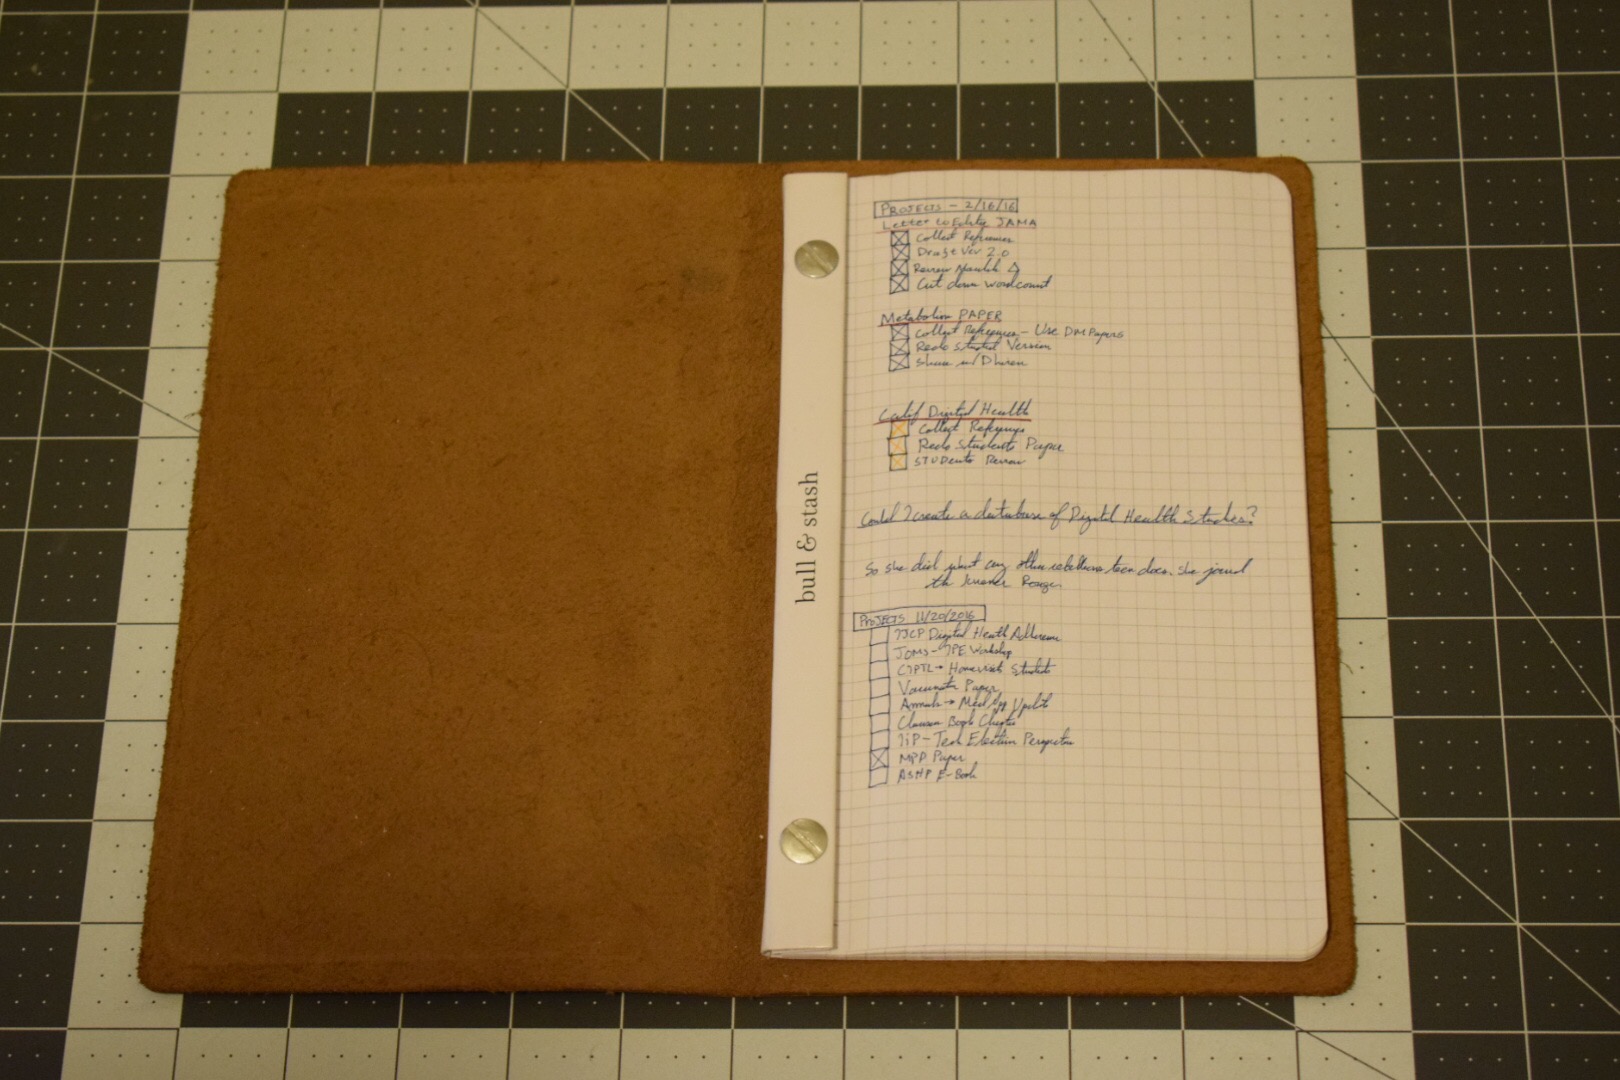 bull & stash
PROJECTS - 2/16/16
Letter to Editor JAMA
Collect References
Draft Ver 2.0
Review
Cut down wordcount
Metabolism PAPER
Collect References - Use DM Papers
Redo Student Version
Share w/
Digital Health
Collect References
Redo Students Paper
STUDents Review
Could I create a database of Digital Health Studies?
So she did what any other rebellious teen does. She joined
the
PROJECTS 11/20/2016
IJCP Digital Health Adherence
JOMS - IPE Workshop
CIPTL → Students
Paper
Annals → Med App Update
Book Chapter
TIP - Tech Election Perspective
MPP Paper
ASHP E-Book